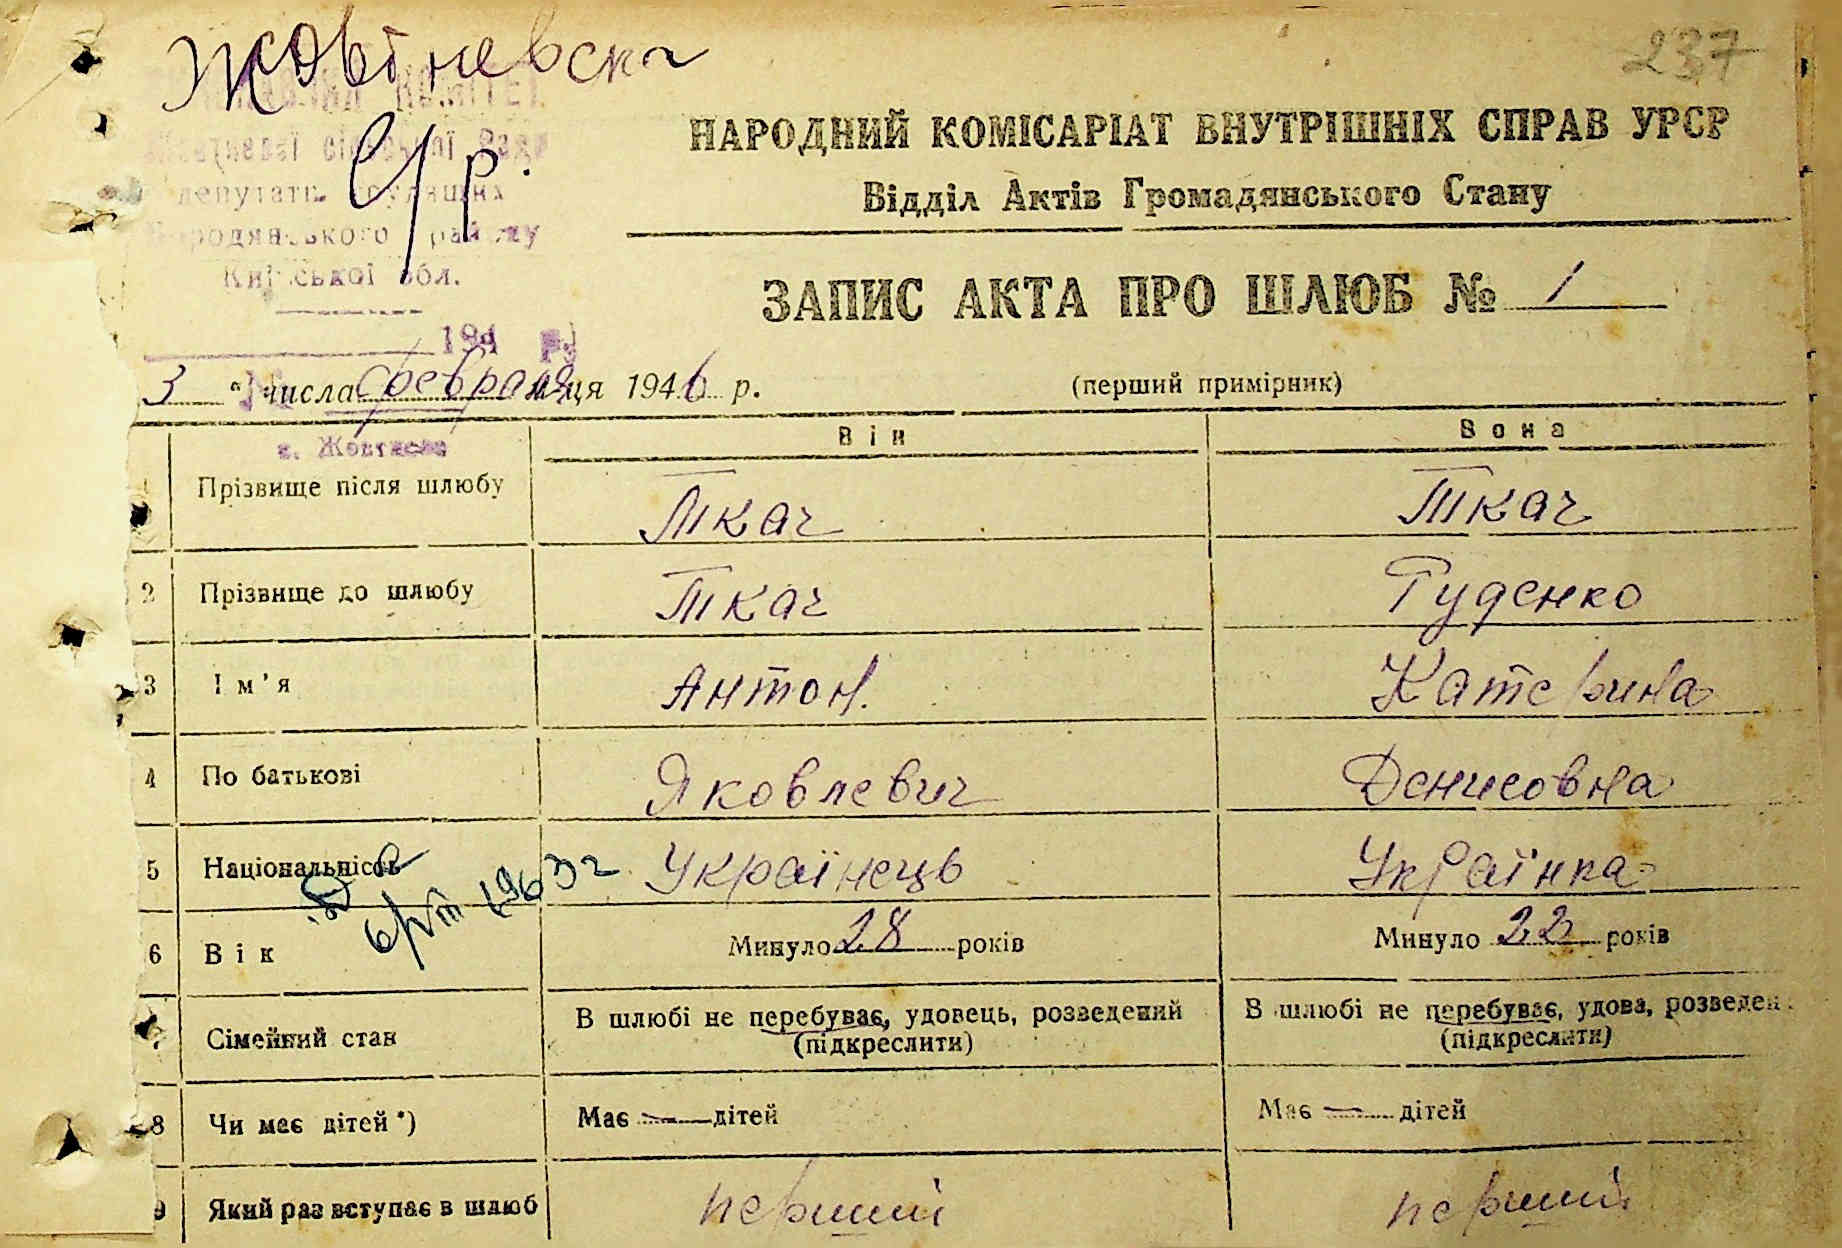 237
Жовтневска
с/р.
НАРОДНИЙ КОМІСАРІАТ ВНУТРІШНІХ СПРАВ УРСР
Відділ Актів Громадянського Стану
депутатів трудящих
Бородянського району
Київської обл.
ЗАПИС АКТА ПРО ШЛЮБ № 1
194 р.
3 " числа февраля м-ця 1946 р.
(перший примірник)
Він Вона
1 Прізвище після шлюбу Ткач Ткач
2 Прізвище до шлюбу Ткач Гуденко
3 Ім'я Антон. Катерина
4 По батькові Яковлевич Денисовна
5 Національність Українець Українка
6 Вік Минуло 28 років Минуло 22 років
7 Сімейний стан В шлюбі не перебуває, удовець, розведений В шлюбі не перебуває, удова, розведен
(підкреслити) (підкреслити)
8 Чи має дітей *) Має — дітей Має — дітей
9 Який раз вступає в шлюб перший перший